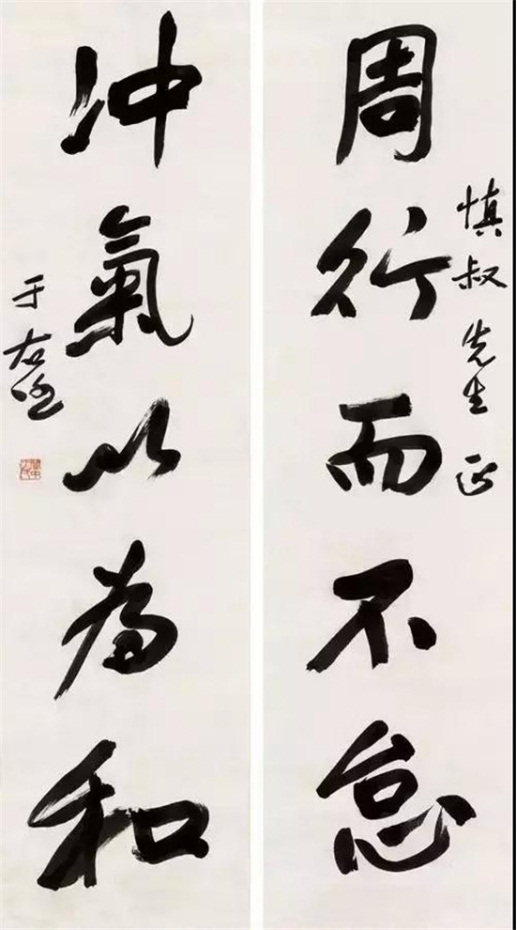 周行而不怠
慎叔先生正
冲氣以為和
于右任